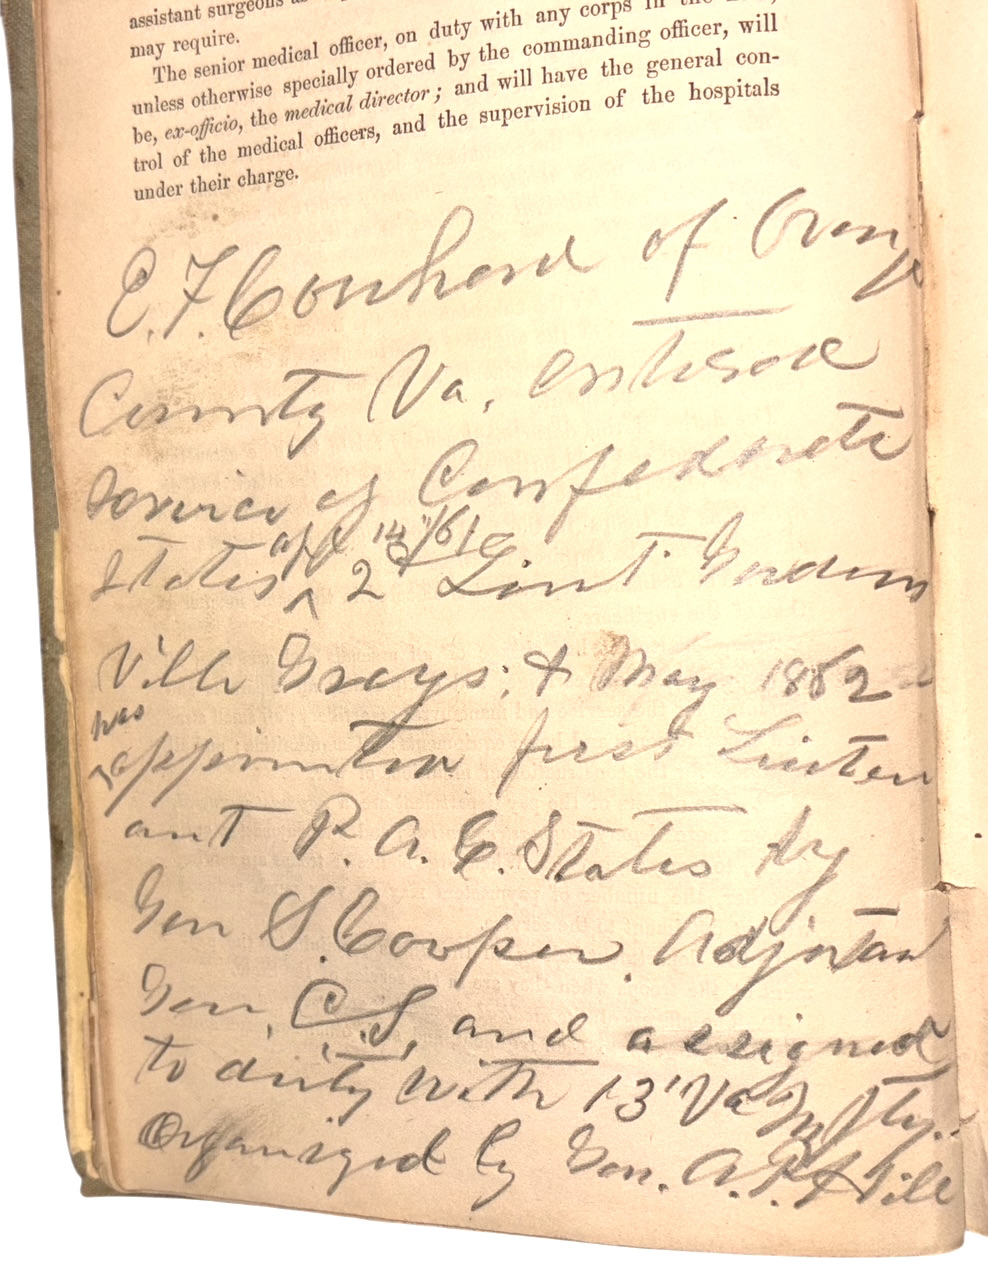 assistant surgeons
may require.
The senior medical officer, on duty with any corps in the
unless otherwise specially ordered by the commanding officer, will
be, ex-officio, the medical director; and will have the general con-
trol of the medical officers, and the supervision of the hospitals
under their charge.
E. F. Cowherd of Orange
County Va. entered
service of Confederate
States 2d Lieut Gordons
14th/61
Ville Grays; & May 1862
has
appointed first Lieuten
ant P. A. C. States by
Gen S. Cooper. Adjutant
Gen. C.S. and assigned
to duty with 13' Va Infty.
Organized by Gen. A. P. Hill